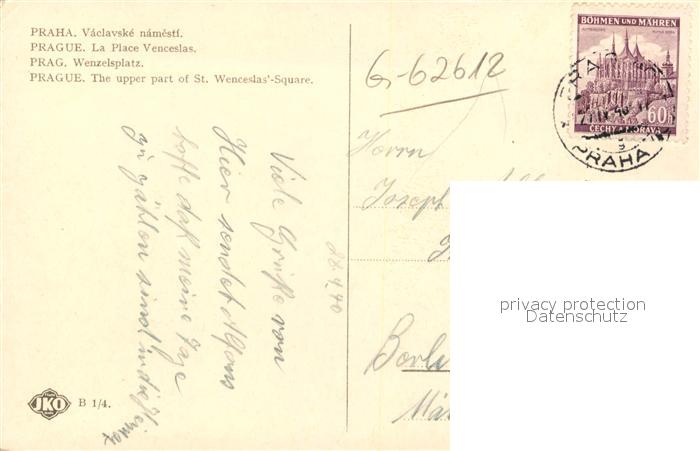 PRAHA. Václavské náměstí.
PRAGUE. La Place Venceslas.
PRAG. Wenzelsplatz.
PRAGUE. The upper part of St. Wenceslas'-Square.
G-62612
BÖHMEN UND MÄHREN
60h
ČECHY A MORAVA
PRAHA
Herrn
Josef
privacy protection
Datenschutz
Viele Grüße von
Hier sendet Alfons
hoffe daß meine Tage
zu zählen sind in die
28.9.40
Berli
JKO
B 1/4.